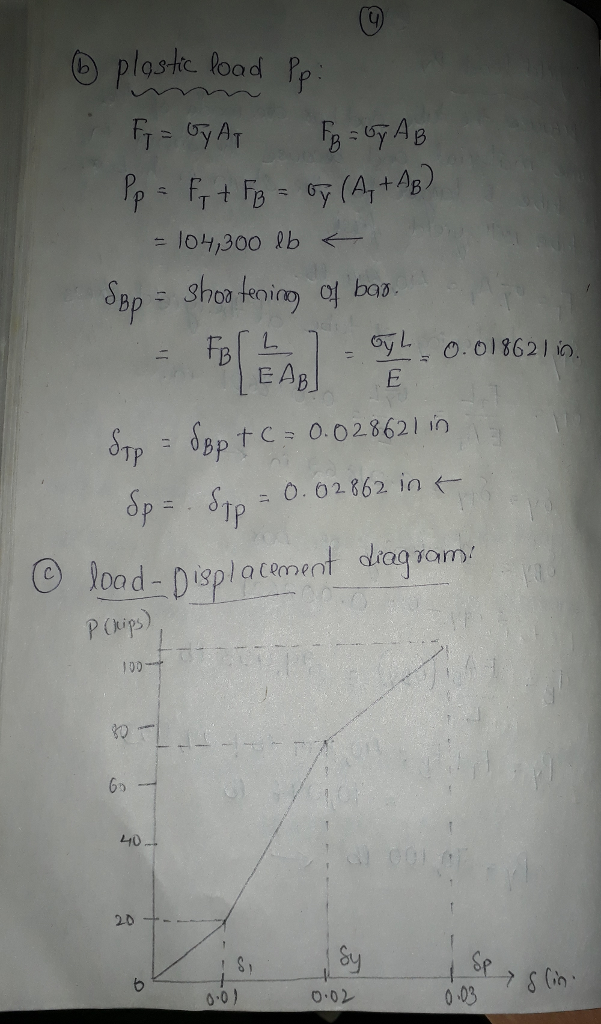 ④
ⓑ plastic load Pp:
F_T = σy A_T F_B = σy A_B
Pp = F_T + F_B = σy (A_T + A_B)
= 104,300 lb ←
δ_Bp = shortening of bar.
= F_B [L / E A_B] = σy L / E = 0.018621 in.
δ_Tp = δ_Bp + C = 0.028621 in
δp = δ_Tp = 0.02862 in ←
ⓒ load-Displacement diagram:
P (kips)
100
80
60
40
20
δ₁ δy δp
0 0.01 0.02 0.03 δ (in.